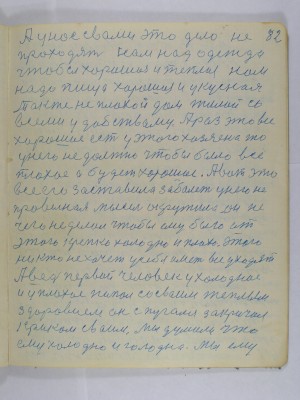 А у нас с вами это дело не 82
проходят нам над одежда
чтобы хорошая и теплая нам
надо пища хорошая и укусная
Также не плохой дом жилой со
всеми удобствами. А раз это все
хорошая ест у этого хозяена то
у него не должно чтобы было все
плохое а будет хорошая. А вот это
все его заставила заболет у него не
правелная мысел окружила он не
чего не делал чтобы ему было от
этого крепко холодно и плохо. Этого
ни кто не хочет у себя имет все уходят
А вед первой человек у холодное
и у плохое попал со своим теплым
здоровием он с пугался закричал
криком своим, мы думали что
ему холодно и голодно. мы ему